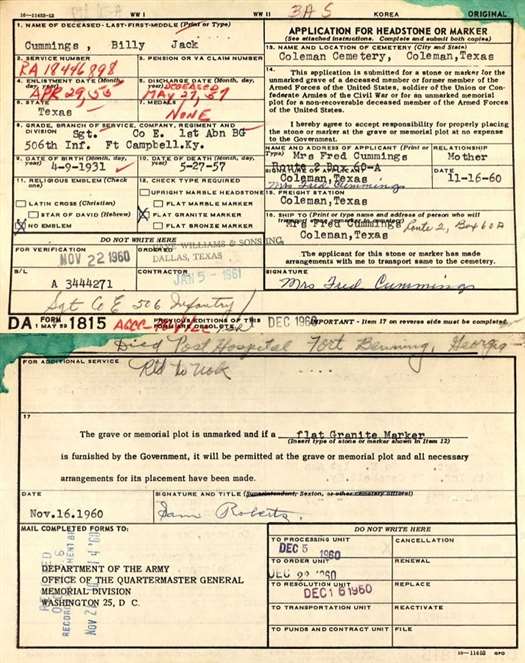 16—11453-12
WW I
WW II
3A S
KOREA
ORIGINAL
1. NAME OF DECEASED-LAST-FIRST-MIDDLE (Print or Type)
Cummings, Billy Jack
APPLICATION FOR HEADSTONE OR MARKER
(See attached instructions. Complete and submit both copies)
2. SERVICE NUMBER
RA 18446898
3. PENSION OR VA CLAIM NUMBER
13. NAME AND LOCATION OF CEMETERY (City and State)
Coleman Cemetery, Coleman, Texas
4. ENLISTMENT DATE (Month, day, year)
APR 29, 56
5. DISCHARGE DATE (Month, day, year)
DECEASED
MAY 27, 57
14. This application is submitted for a stone or marker for the
unmarked grave of a deceased member or former member of the
Armed Forces of the United States, soldier of the Union or Con-
federate Armies of the Civil War or for an unmarked memorial
plot for a non-recoverable deceased member of the Armed Forces
of the United States.
6. STATE
Texas
7. MEDALS
NONE
8. GRADE, BRANCH OF SERVICE, COMPANY, REGIMENT AND
DIVISION
Sgt. Co E. 1st Abn BG
506th Inf. Ft Campbell.Ky.
I hereby agree to accept responsibility for properly placing
the stone or marker at the grave or memorial plot at no expense
to the Government.
9. DATE OF BIRTH (Month, day, year)
4-9-1931
10. DATE OF DEATH (Month, day, year)
5-27-57
NAME AND ADDRESS OF APPLICANT (Print or Type)
Mrs Fred Cummings
Route 2 Box 60-A
Coleman, Texas
RELATIONSHIP
Mother
11. RELIGIOUS EMBLEM (Check one)
LATIN CROSS (Christian)
STAR OF DAVID (Hebrew)
NO EMBLEM
12. CHECK TYPE REQUIRED
UPRIGHT MARBLE HEADSTONE
FLAT MARBLE MARKER
FLAT GRANITE MARKER
FLAT BRONZE MARKER
SIGNATURE OF APPLICANT
Mrs Fred Cummings
DATE
11-16-60
15. FREIGHT STATION
Coleman, Texas
16. SHIP TO (Print or type name and address of person who will
transport stone or marker to cemetery)
Mrs Fred Cummings Route 2, Box 60A
Coleman, Texas
DO NOT WRITE HERE
FOR VERIFICATION
NOV 22 1960
ORDERED
WILLIAMS & SONS INC.
DALLAS, TEXAS
The applicant for this stone or marker has made
arrangements with me to transport same to the cemetery.
B/L
A 3444271
CONTRACTOR
JAN 5 - 1961
SIGNATURE
Mrs Fred Cummings
Sgt Co E 506 Infantry
DA FORM 1 MAY 59 1815
PREVIOUS EDITIONS OF THIS
FORM ARE OBSOLETE.
DEC 1960
IMPORTANT - Item 17 on reverse side must be completed.
Died Post Hospital Fort Benning, Georgia
FOR ADDITIONAL SERVICE
17
The grave or memorial plot is unmarked and if a flat Granite Marker
(Insert type of stone or marker shown in Item 12)
is furnished by the Government, it will be permitted at the grave or memorial plot and all necessary
arrangements for its placement have been made.
DATE
Nov.16.1960
SIGNATURE AND TITLE (Superintendent, Sexton, or other cemetery official)
Sam Roberts.
MAIL COMPLETED FORMS TO:
DEPARTMENT OF THE ARMY
OFFICE OF THE QUARTERMASTER GENERAL
MEMORIAL DIVISION
WASHINGTON 25, D C.
DO NOT WRITE HERE
TO PROCESSING UNIT
DEC 5 1960
CANCELLATION
TO ORDER UNIT
DEC 1960
RENEWAL
TO RESOLUTION UNIT
DEC 16 1960
REPLACE
TO TRANSPORTATION UNIT
REACTIVATE
TO FUNDS AND CONTRACT UNIT
FILE
16—11453 GPO